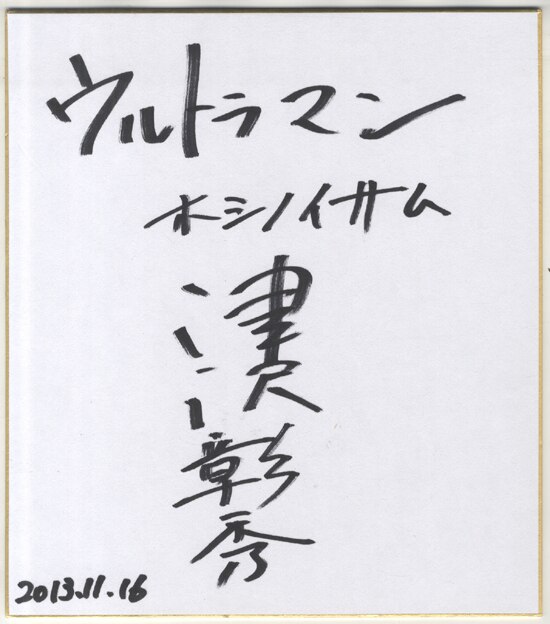 ウルトラマン
ホシノイサム
津沢彰秀
2013.11.16